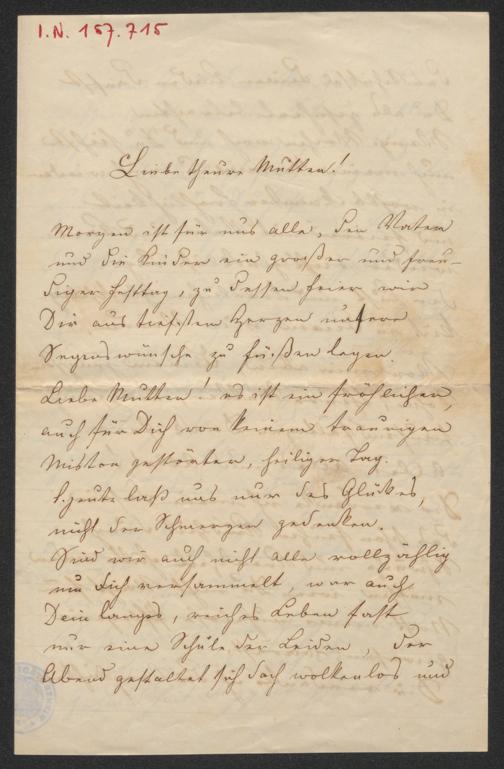 I.N. 157.715
Liebe theure Mutter!
Morgen ist für uns alle, den Vater
und die Kinder ein großer und freu-
diger Festtag, zu dessen Feier wir
Dir aus tiefstem Herzen unsere
Segenswünsche zu Füßen legen.
Liebe Mutter! es ist ein fröhlicher,
auch für Dich von keinem traurigen
Miston gestörter, heiliger Tag.
Heute laß uns nur des Glückes,
nicht der Schmerzen gedenken.
Sind wir auch nicht alle vollzählig
um Dich versammelt, war auch
Dein langes, reiches Leben fast
nur eine Schule der Leiden, der
Abend gestaltet sich doch wolkenlos und